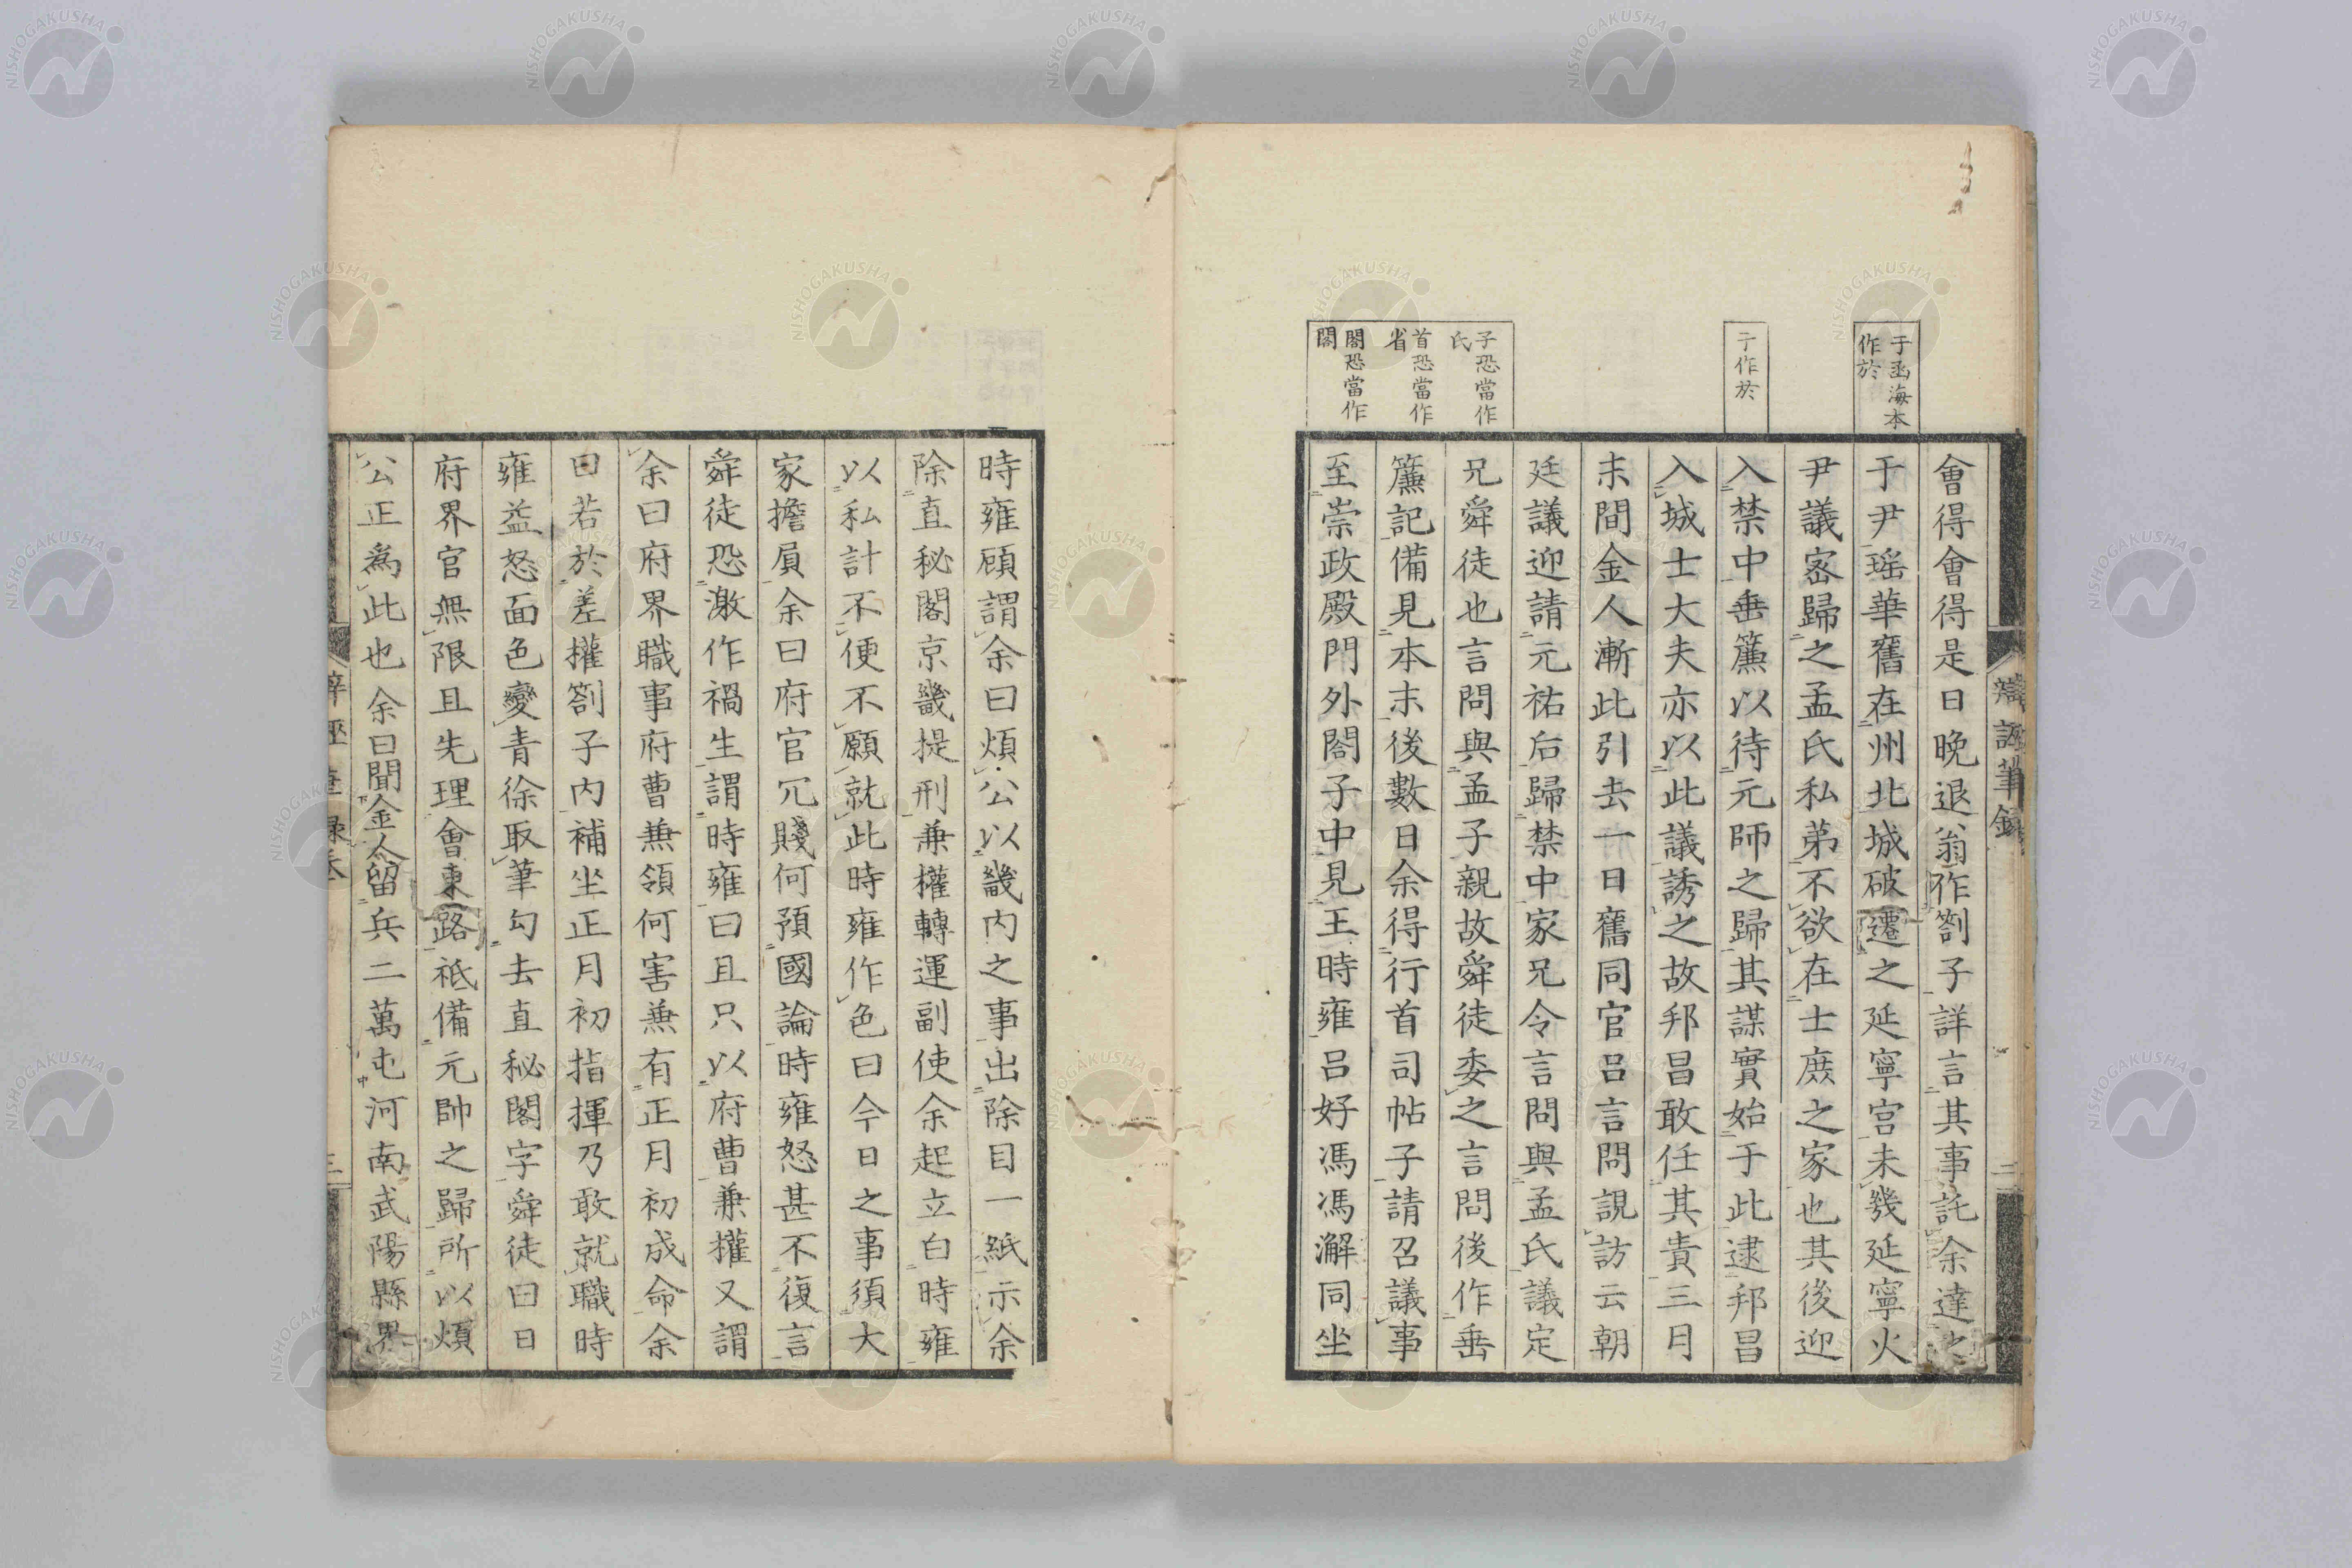 于函海本
作於
于作於
子恐當作
氏
首恐當作
省
閤恐當作
閣
會得會得是日晚退翁作劄子詳言其事託余達之
于尹瑤華舊在州北城破遷之延寧宮未幾延寧火
尹議密歸之孟氏私弟不欲在士庶之家也其後迎
入禁中垂簾以待元師之歸其謀實始于此逮邦昌
入城士大夫亦以此議誘之故邦昌敢任其責三月
末間金人漸此引去一日舊同官呂言問訪云朝
廷議迎請元祐后歸禁中家兄令言問與孟氏議定
兄舜徒也言問與孟子親故舜徒委之言問後作垂
簾記備見本末後數日余得行首司帖子請召議事
至崇政殿門外閤子中見王時雍呂好馮馮澥同坐
辯誣筆錄
二
時雍顧謂余曰煩公以畿內之事出除目一紙示余
除直秘閣京畿提刑兼權轉運副使余起立白時雍
以私計不便不願就此時雍作色曰今日之事須大
家擔負余曰府官冗賤何預國論時雍怒甚不復言
舜徒恐激作禍生謂時雍曰且只以府曹兼權又謂
余曰府界職事府曹兼領何害兼有正月初成命余
曰若於差權劄子內補坐正月初指揮乃敢就職時
雍益怒面色變青徐取筆勾去直秘閣字舜徒曰日
府界官無限且先理會東路祗備元帥之歸所以煩
公正為此也余曰聞金人留兵二萬屯河南武陽縣界
三
NISHOGAKUSHA